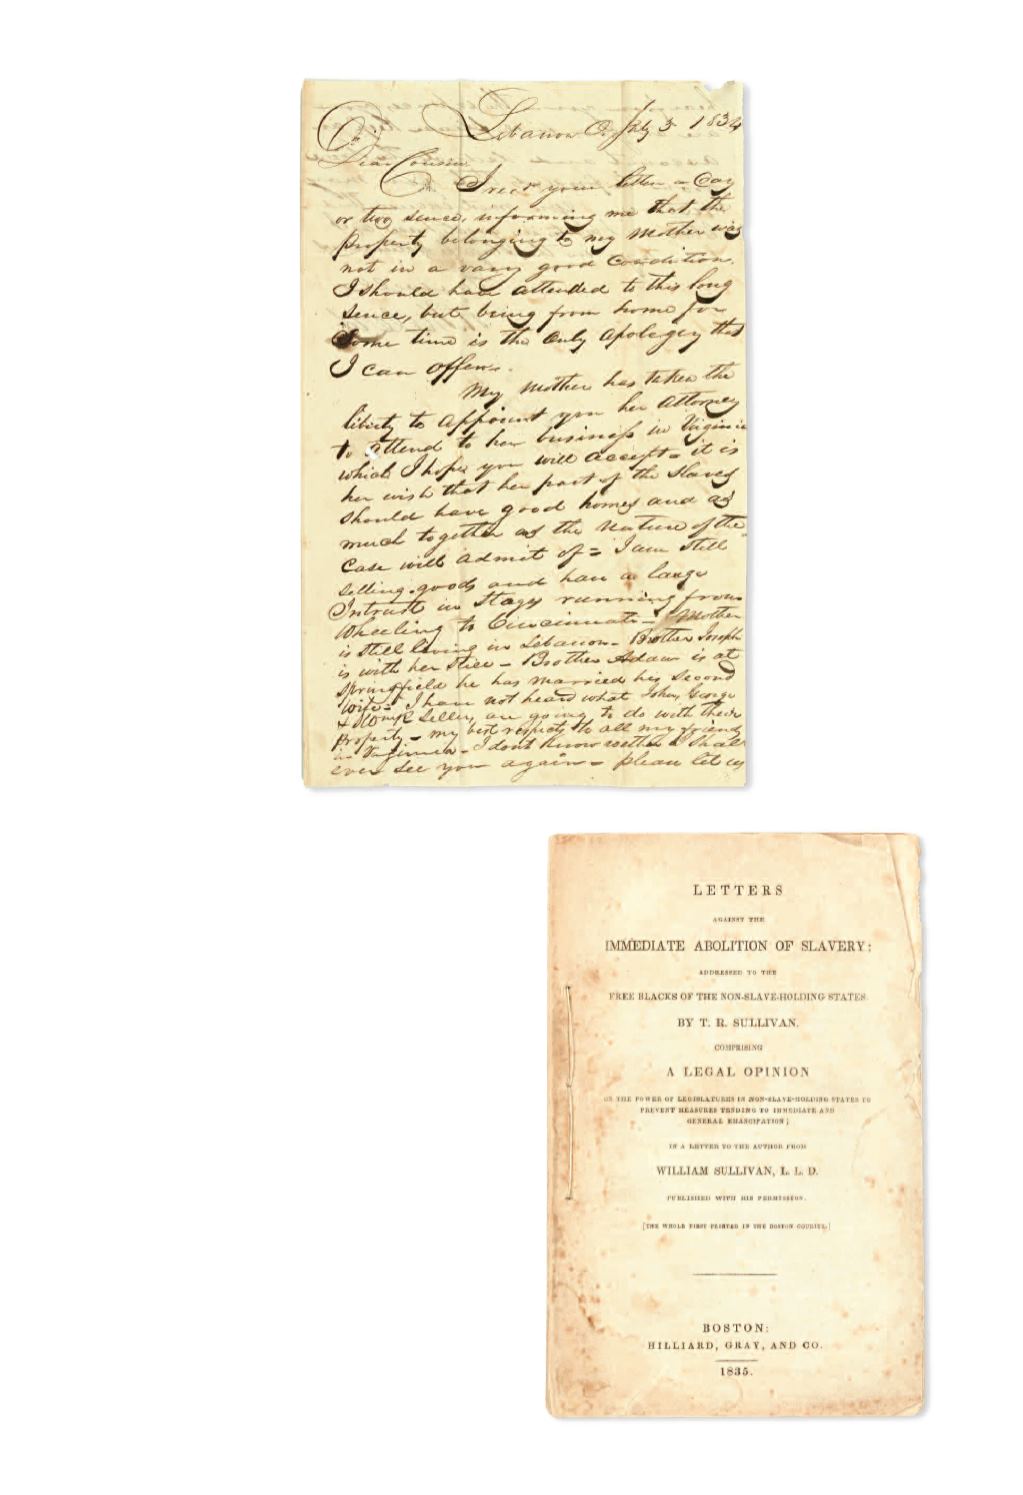 Lebanon O. July 3 1834
Dear Cousin
I recd your letter a Day
or two sence, informing me that the
Property belonging to my Mother was
not in a vary good Condition.
I should have attended to this long
sence, but being from home for
Some time is the Only Apolegey that
I can offer.
My Mother has taken the
liberty to appoint you her Attorney
to attend to her business in Virginia
which I hope you will accept - it is
her wish that her part of the Slaves
should have good homes and as
much together as the Nature of the
Case will admit of = I am still
selling goods and have a large
Intrust in Stages running from
Wheeling to Cincinnati - Mother
is still living in Lebanon - Brother Joseph
is with her still - Brother Adam is at
Springfield he has married his Second
Wife - I have not heard what John, George
& Seller, are going to do with their
Property - my best respects to all my friends
in Virginia - I dont know wether I shall
ever see you again - please let us
LETTERS
AGAINST THE
IMMEDIATE ABOLITION OF SLAVERY;
ADDRESSED TO THE
FREE BLACKS OF THE NON-SLAVE-HOLDING STATES.
BY T. R. SULLIVAN.
COMPRISING
A LEGAL OPINION
ON THE POWER OF LEGISLATURES IN NON-SLAVE-HOLDING STATES TO
PREVENT MEASURES TENDING TO IMMEDIATE AND
GENERAL EMANCIPATION;
IN A LETTER TO THE AUTHOR FROM
WILLIAM SULLIVAN, L. L. D.
PUBLISHED WITH HIS PERMISSION.
[THE WHOLE FIRST PRINTED IN THE BOSTON COURIER.]
BOSTON:
HILLIARD, GRAY, AND CO.
1835.